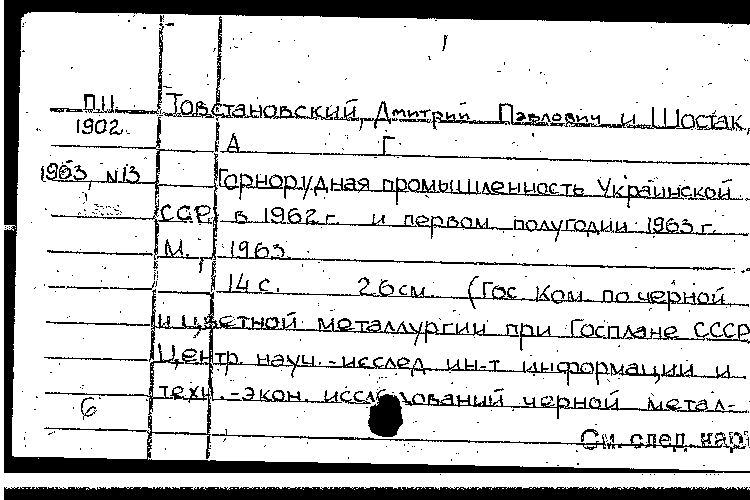 П.11. Товстановский, Дмитрий Павлович и Шостак,
1902. А Г
1963, N13 Горнорудная промышленность Украинской
ССР в 1962 г. и первом полугодии 1963 г.
М., 1963
14 с. 26 см. (Гос. Ком. по черной
и цветной металлургии при Госплане СССР
Центр. науч.-исслед. ин-т информации и
техн.-экон. исследований черной метал-
6
См. след. кар